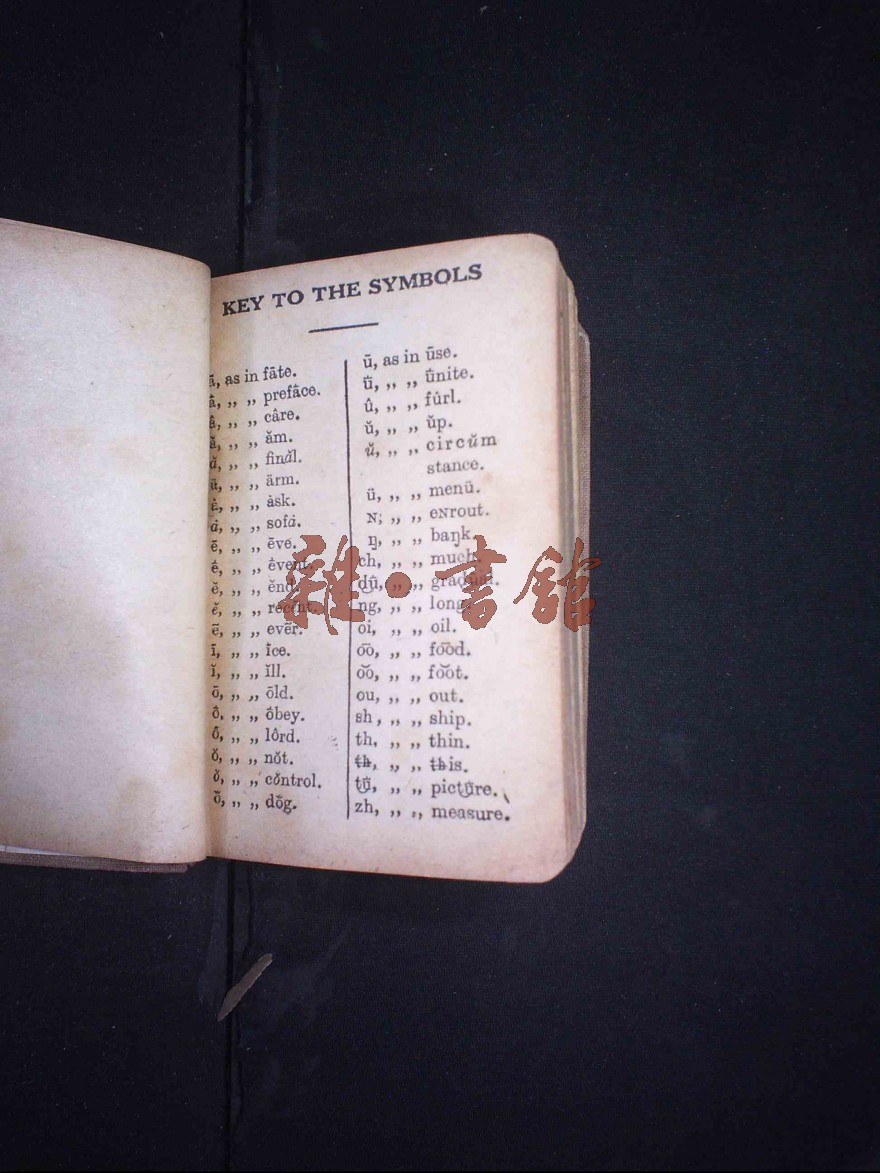 KEY TO THE SYMBOLS
ā, as in fāte.
ḁ̂, „ „ prefa̍ce.
â, „ „ câre.
ă, „ „ ăm.
ă, „ „ finăl.
ä, „ „ ärm.
ȧ, „ „ ȧsk.
ȧ, „ „ sofȧ.
ē, „ „ ēve.
ė̂, „ „ ė̂vent.
ĕ, „ „ ĕnd.
ĕ, „ „ recĕnt.
ẽ, „ „ evẽr.
ī, „ „ īce.
ĭ, „ „ ĭll.
ō, „ „ ōld.
ȯ̂, „ „ ȯ̂bey.
ô, „ „ lôrd.
ŏ, „ „ nŏt.
ŏ, „ „ cŏntrol.
ō̆, „ „ dō̆g.
ū, as in ūse.
ū̇, „ „ ū̇nite.
û, „ „ fûrl.
ŭ, „ „ ŭp.
ŭ, „ „ circŭm
stance.
ü, „ „ menü.
ɴ, „ „ eɴrout.
ŋ, „ „ baŋk.
ch, „ „ much.
dū̇, „ „ gradūal.
ng, „ „ long.
oi, „ „ oil.
o͞o, „ „ fo͞od.
o͝o, „ „ fo͝ot.
ou, „ „ out.
sh, „ „ ship.
th, „ „ thin.
th, „ „ this.
tū̇, „ „ pictū̇re.
zh, „ „ measure.
雜·書館